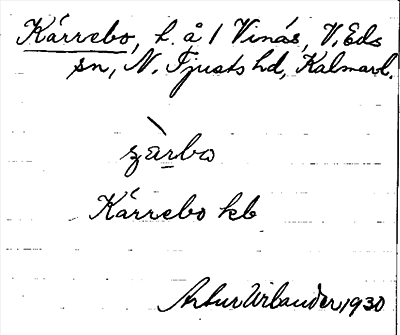 Kärrebo, h. å 1 Vinäs, V. Eds
sn, N. Tjusts hd, Kalmar l.
zàrbo
Kärrebo kb
Artur Wilander 1930